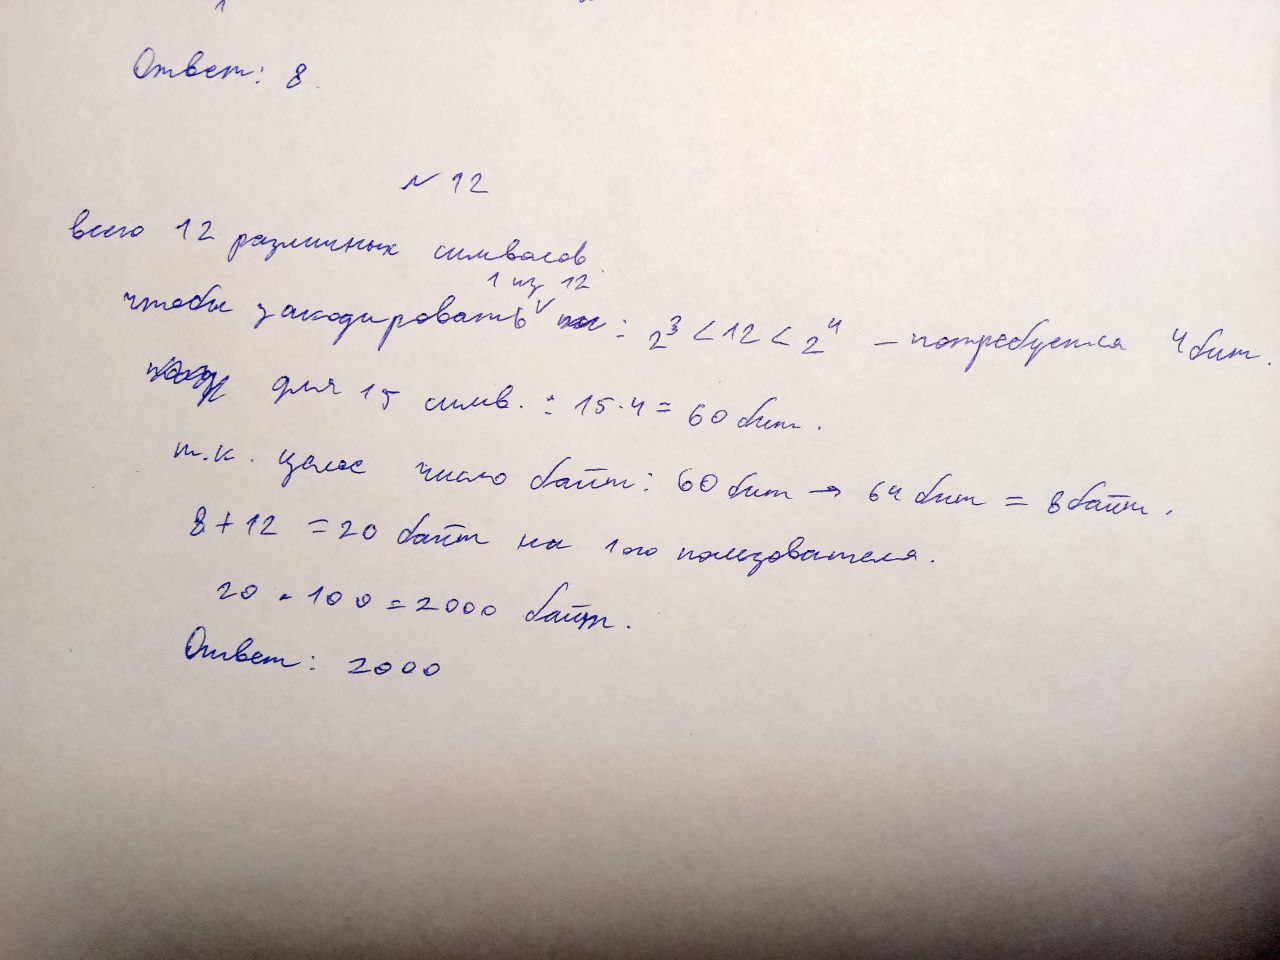 Ответ: 8.
№ 12
всего 12 различных символов.
1 из 12
чтобы закодировать : 2³ < 12 < 2⁴ – потребуется 4 бит.
для 15 симв. : 15·4 = 60 бит.
т.к. целое число байт: 60 бит → 64 бит = 8 байт.
8 + 12 = 20 байт на 1ого пользователя.
20 · 100 = 2000 байт.
Ответ: 2000